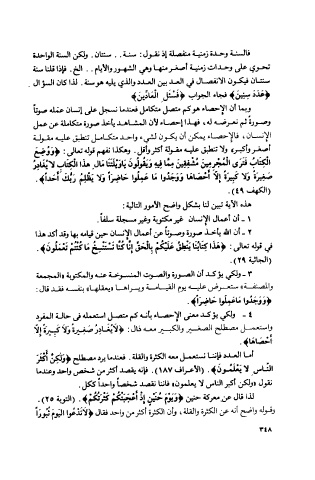 فالسنة وحدة زمنية منفصلة إذ نقول: سنة.. ستتان. ولكن السنة الواحدة
تحوي على وحدات زمنية أصغر منها وهي الشهور والأيام.. الخ. فإذا قلنا سنة
ستتان فيكون الانفصال في العد بين العدد والذي يليه هو سنة. لذا كان السؤال
﴿عَدَدَ سِنِينَ﴾ فجاء الجواب ﴿فَسْئَلِ الْعَادِّينَ﴾
وبما أن الإحصاء هو كم متصل متكامل فعندما نسجل على إنسان عمله صوتاً
وصورة ثم نعرضه له، فهذا إحصاء لأن المشاهد يأخذ صورة متكاملة عن عمل
الإنسان، فالإحصاء يمكن أن يكون لشيء واحد متكامل تنطبق عليه مقولة
أصغر وأكبر، ولا تنطبق عليه مقولة أكثر وأقل. وهكذا نفهم قوله تعالى: ﴿وَوُضِعَ
الْكِتَابُ فَتَرَى الْمُجْرِمِينَ مُشْفِقِينَ مِمَّا فِيهِ وَيَقُولُونَ يَاوَيْلَتَنَا مَالِ هَذَا الْكِتَابِ لَا يُغَادِرُ
صَغِيرَةً وَلَا كَبِيرَةً إِلَّا أَحْصَاهَا وَوَجَدُوا مَا عَمِلُوا حَاضِرًا وَلَا يَظْلِمُ رَبُّكَ أَحَداً﴾.
(الكهف ٤٩).
هذه الآية تبين لنا بشكل واضح الأمور التالية:
١ - أن أعمال الإنسان غير مكتوبة وغير مسجلة سلفاً.
٢ - أن الله يأخذ صورة وصوتاً عن أعمال الإنسان حين قيامه بها وقد أكد هذا
في قوله تعالى: ﴿هَذَا كِتَابُنَا يَنطِقُ عَلَيْكُم بِالْحَقِّ إِنَّا كُنَّا نَسْتَنْسِخُ مَا كُنتُمْ تَعْمَلُونَ﴾.
(الجاثية ٢٩).
٣ - ولكي يؤكد أن الصورة والصوت المنسوخة عنه والمكتوبة والمجمعة
والمصنفة، ستعرض عليه يوم القيامة ويراها ويعقلها، بنفسه فقد قال:
﴿وَوَجَدُوا مَاعَمِلُوا حَاضِراً﴾.
٤ - ولكي يؤكد معنى الإحصاء بأنه كم متصل استعمله في حالة المفرد
واستعمل مصطلح الصغير والكبير معه قال: ﴿لَا يُغَادِرُ صَغِيرَةً وَلَا كَبِيرَةً إِلَّا
أَحْصَاهَا﴾.
أما العدد فإننا نستعمل معه الكثرة والقلة. فعندما يرد مصطلح ﴿وَلَكِنَّ أَكْثَرَ
النَّاسِ لَا يَعْلَمُونَ﴾. (الأعراف ١٨٧). فإنه يقصد أكثر من شخص واحد وعندما
نقول «ولكن أكبر الناس لا يعلمون» فإننا نقصد شخصاً واحداً ككل.
لذا قال عن معركة حنين ﴿وَيَوْمَ حُنَيْنٍ إِذْ أَعْجَبَتْكُمْ كَثْرَتُكُمْ﴾. (التوبة ٢٥).
وقوله واضح أنه عن الكثرة والقلة، وأن الكثرة أكثر من واحد فقال ﴿لَا تَدْعُوا الْيَوْمَ ثُبُوراً
٣٤٨